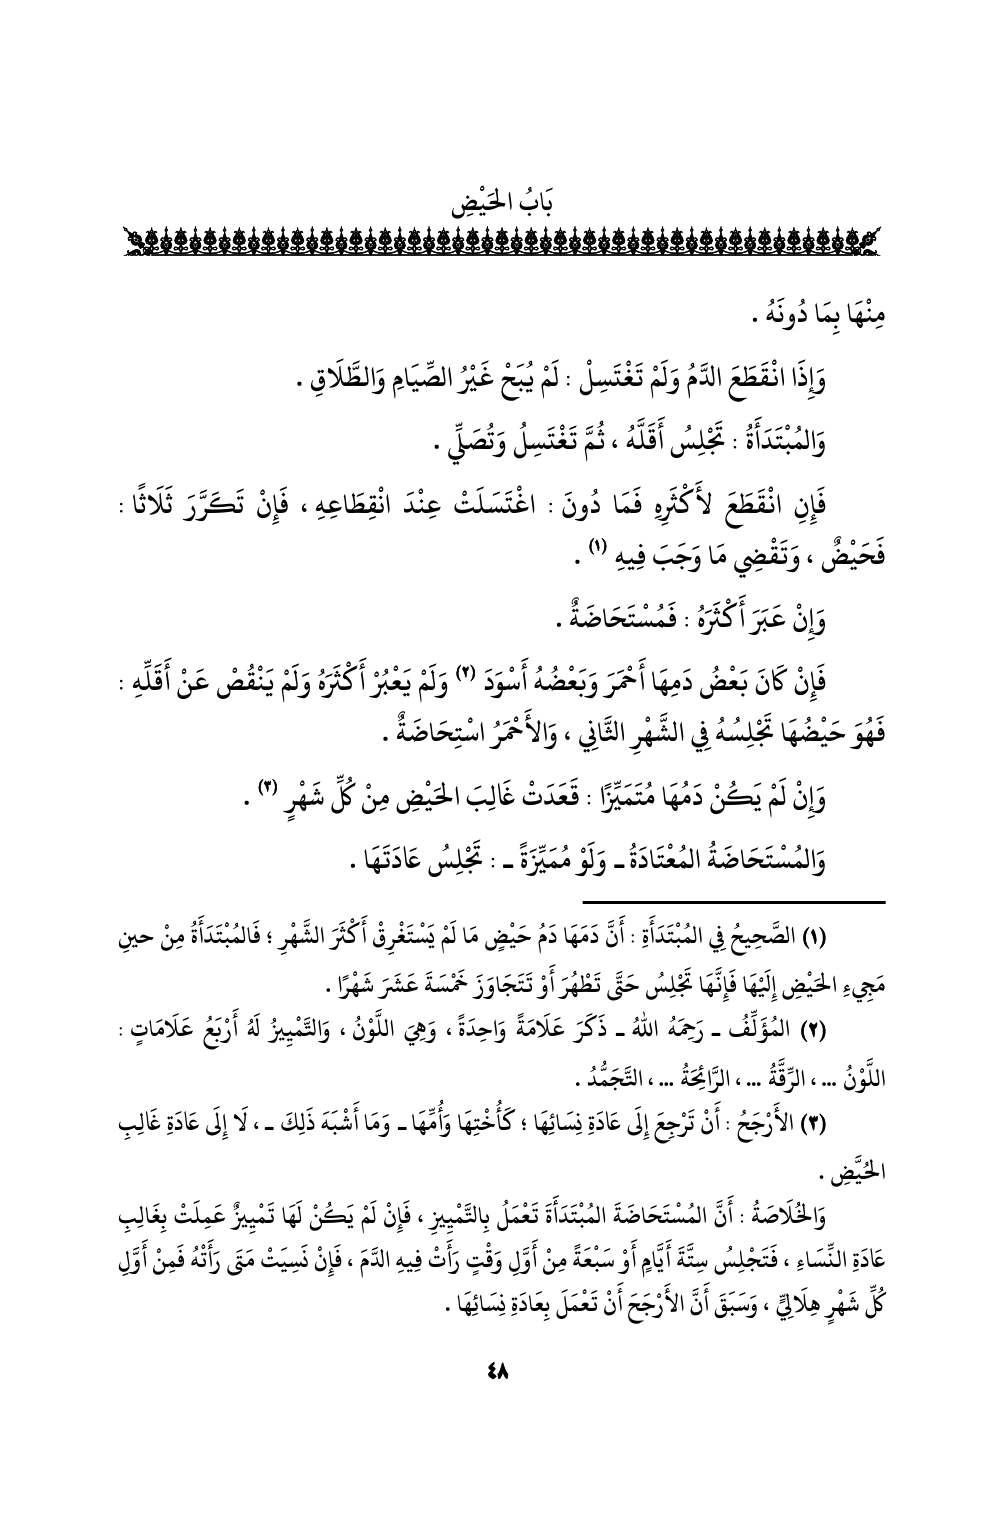 بَابُ الحَيْضِ
مِنْهَا بِمَا دُونَهُ .
وَإِذَا انْقَطَعَ الدَّمُ وَلَمْ تَغْتَسِلْ : لَمْ يُبَحْ غَيْرُ الصِّيَامِ وَالطَّلَاقِ .
وَالمُبْتَدَأَةُ : تَجْلِسُ أَقَلَّهُ ، ثُمَّ تَغْتَسِلُ وَتُصَلِّي .
فَإِنِ انْقَطَعَ لأَكْثَرِهِ فَمَا دُونَ : اغْتَسَلَتْ عِنْدَ انْقِطَاعِهِ ، فَإِنْ تَكَرَّرَ ثَلَاثًا :
فَحَيْضٌ ، وَتَقْضِي مَا وَجَبَ فِيهِ (١) .
وَإِنْ عَبَرَ أَكْثَرَهُ : فَمُسْتَحَاضَةٌ .
فَإِنْ كَانَ بَعْضُ دَمِهَا أَحْمَرَ وَبَعْضُهُ أَسْوَدَ (٢) وَلَمْ يَعْبُرْ أَكْثَرَهُ وَلَمْ يَنْقُصْ عَنْ أَقَلِّهِ :
فَهُوَ حَيْضُهَا تَجْلِسُهُ فِي الشَّهْرِ الثَّانِي ، وَالأَحْمَرُ اسْتِحَاضَةٌ .
وَإِنْ لَمْ يَكُنْ دَمُهَا مُتَمَيِّزًا : قَعَدَتْ غَالِبَ الحَيْضِ مِنْ كُلِّ شَهْرٍ (٣) .
وَالمُسْتَحَاضَةُ المُعْتَادَةُ ـ وَلَوْ مُمَيِّزَةً ـ : تَجْلِسُ عَادَتَهَا .
(١) الصَّحِيحُ فِي المُبْتَدَأَةِ : أَنَّ دَمَهَا دَمُ حَيْضٍ مَا لَمْ يَسْتَغْرِقْ أَكْثَرَ الشَّهْرِ ؛ فَالمُبْتَدَأَةُ مِنْ حينِ
مَجِيءِ الحَيْضِ إِلَيْهَا فَإِنَّهَا تَجْلِسُ حَتَّى تَطْهُرَ أَوْ تَتَجَاوَزَ خَمْسَةَ عَشَرَ شَهْرًا .
(٢) المُؤَلِّفُ ـ رَحِمَهُ اللهُ ـ ذَكَرَ عَلَامَةً وَاحِدَةً ، وَهِيَ اللَّوْنُ ، وَالتَّمْيِيزُ لَهُ أَرْبَعُ عَلَامَاتٍ :
اللَّوْنُ ... ، الرِّقَّةُ ... ، الرَّائِحَةُ ... ، التَّجَمُّدُ .
(٣) الأَرْجَحُ : أَنْ تَرْجِعَ إِلَى عَادَةِ نِسَائِهَا ؛ كَأُخْتِهَا وَأُمِّهَا ـ وَمَا أَشْبَهَ ذَلِكَ ـ ، لَا إِلَى عَادَةِ غَالِبِ
الحُيَّضِ .
وَالخُلَاصَةُ : أَنَّ المُسْتَحَاضَةَ المُبْتَدَأَةَ تَعْمَلُ بِالتَّمْيِيزِ ، فَإِنْ لَمْ يَكُنْ لَهَا تَمْيِيزٌ عَمِلَتْ بِغَالِبِ
عَادَةِ النِّسَاءِ ، فَتَجْلِسُ سِتَّةَ أَيَّامٍ أَوْ سَبْعَةً مِنْ أَوَّلِ وَقْتٍ رَأَتْ فِيهِ الدَّمَ ، فَإِنْ نَسِيَتْ مَتَى رَأَتْهُ فَمِنْ أَوَّلِ
كُلِّ شَهْرٍ هِلَالِيٍّ ، وَسَبَقَ أَنَّ الأَرْجَحَ أَنْ تَعْمَلَ بِعَادَةِ نِسَائِهَا .
٤٨